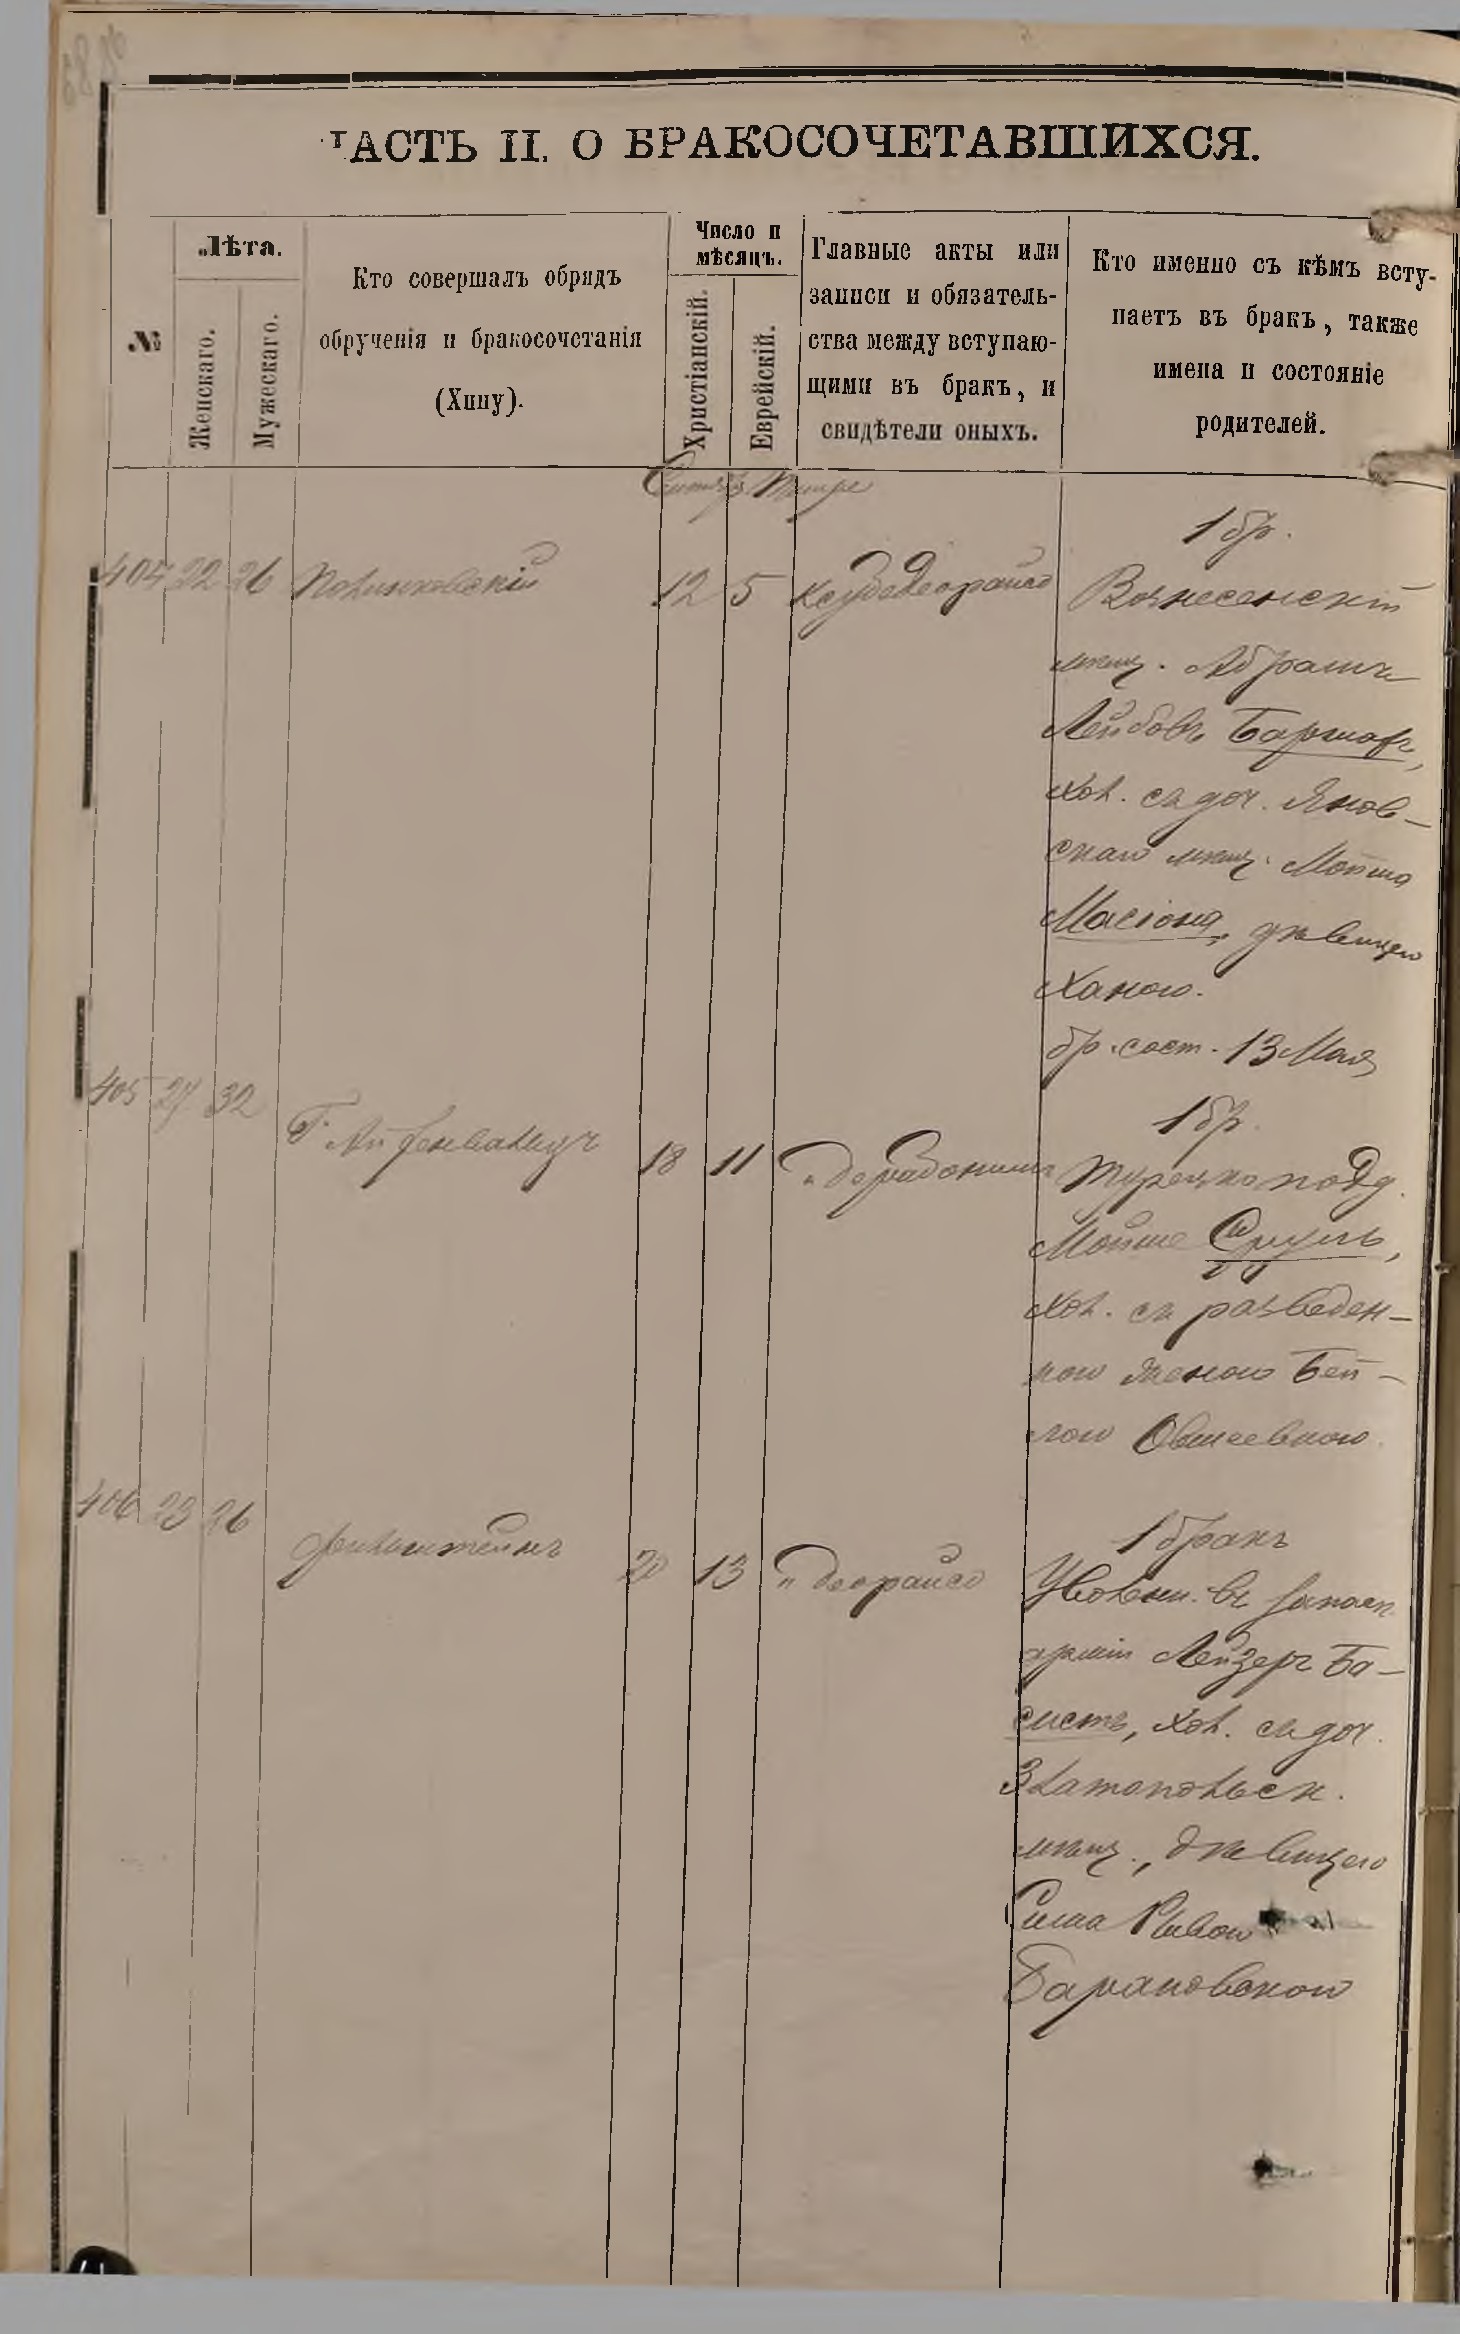 ЧАСТЬ II. О БРАКОСОЧЕТАВШИХСЯ.
№
Лѣта.
Женскаго.
Мужескаго.
Кто совершалъ обрядъ
обрученія и бракосочетанія
(Хипу).
Число и
мѣсяцъ.
Христіанскій.
Еврейскій.
Главные акты или
записи и обязатель-
ства между вступаю-
щими въ бракъ, и
свидѣтели оныхъ.
Кто именно съ кѣмъ всту-
паетъ въ бракъ, также
имена и состояніе
родителей.
Тишре
1 бр.
404 22 26 Полинковскій 12 5 Вознесенскій
мѣщ. Абрамъ
Лейбовъ
хол. съ доч. Янов-
скаго мѣщ. Мошка
Масіона, дѣвицею
Ханою.
бр. сост. 13 Мая
405 27 32
1 бр.
18 11 Турецко подд.
Мойше Сруль,
хол. съ разведен-
ною женою Бей-
лою Овшеевною.
406 23 26
1 бракъ
Финкельштейнъ 20 13 " деорайсо Уволен. въ запасъ
арміи Лейзеръ Ба-
систъ, хол. съ доч.
Златопольск.
мѣщ., дѣвицею
Сима Ривою
Барановскою